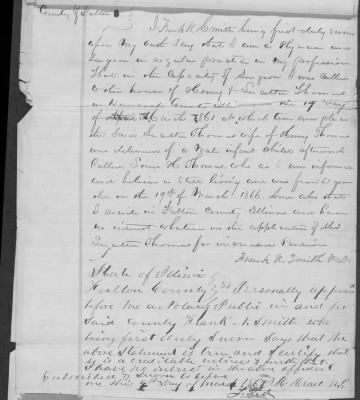 County of Fulton
I Frank N. Smith being first duly sworn
upon my oath say that I am a Physician and
Surgeon in regular practice in my profession
that in the capacity of Surgeon I was called
to the house of Henry & Thomas
in County Ills on the 19 day
of March 1861 at which time and place
the said wife of Henry Thomas
was delivered of a male infant child afterwards
called Louis H. Thomas, who as I am informed
and believe is still living and was five years
old on the 19th of March 1866. And who states
I reside in Fulton County Illinois and have
no interest whatever in the application of Mrs
Thomas for increase Pension
Frank N. Smith M.D.
State of Illinois
Fulton County } SS Personally appeared
before me a Notary Public in and for
Said County Frank N. Smith who
being first duly Sworn Says that the
above Statement is true and I certify that
he is a creditable witness & further that
I have no interest in the above
Subscribed & Sworn to before
me this day of March